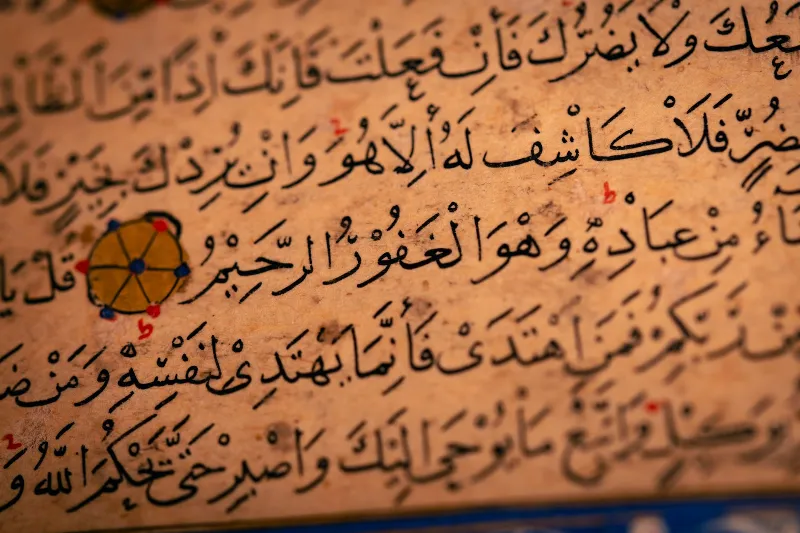 يَنْفَعُكَ وَلَا يَضُرُّكَ فَاِنْ فَعَلْتَ فَاِنَّكَ اِذًا مِنَ الظَّالِمِ
بِضُرٍّ فَلَا كَاشِفَ لَهُ اِلَّا هُوَ وَاِنْ يُرِدْكَ بِخَيْرٍ فَلَا
اءُ مِنْ عِبَادِهٖ وَهْوَ الْغَفُوْرُ الرَّحِيْمُ قُلْ يَا
مِنْ رَبِّكُمْ فَمَنِ اهْتَدَىْ فَاَنَّمَا يَهْتَدِيْ لِنَفْسِهٖ وَمَنْ ضَ
بِوَكِيْلٍ وَاتَّبِعْ مَا يُوْحَىْ اِلَيْكَ وَاصْبِرْ حَتَّىْ يَحْكُمَ اللّٰهُ وَ